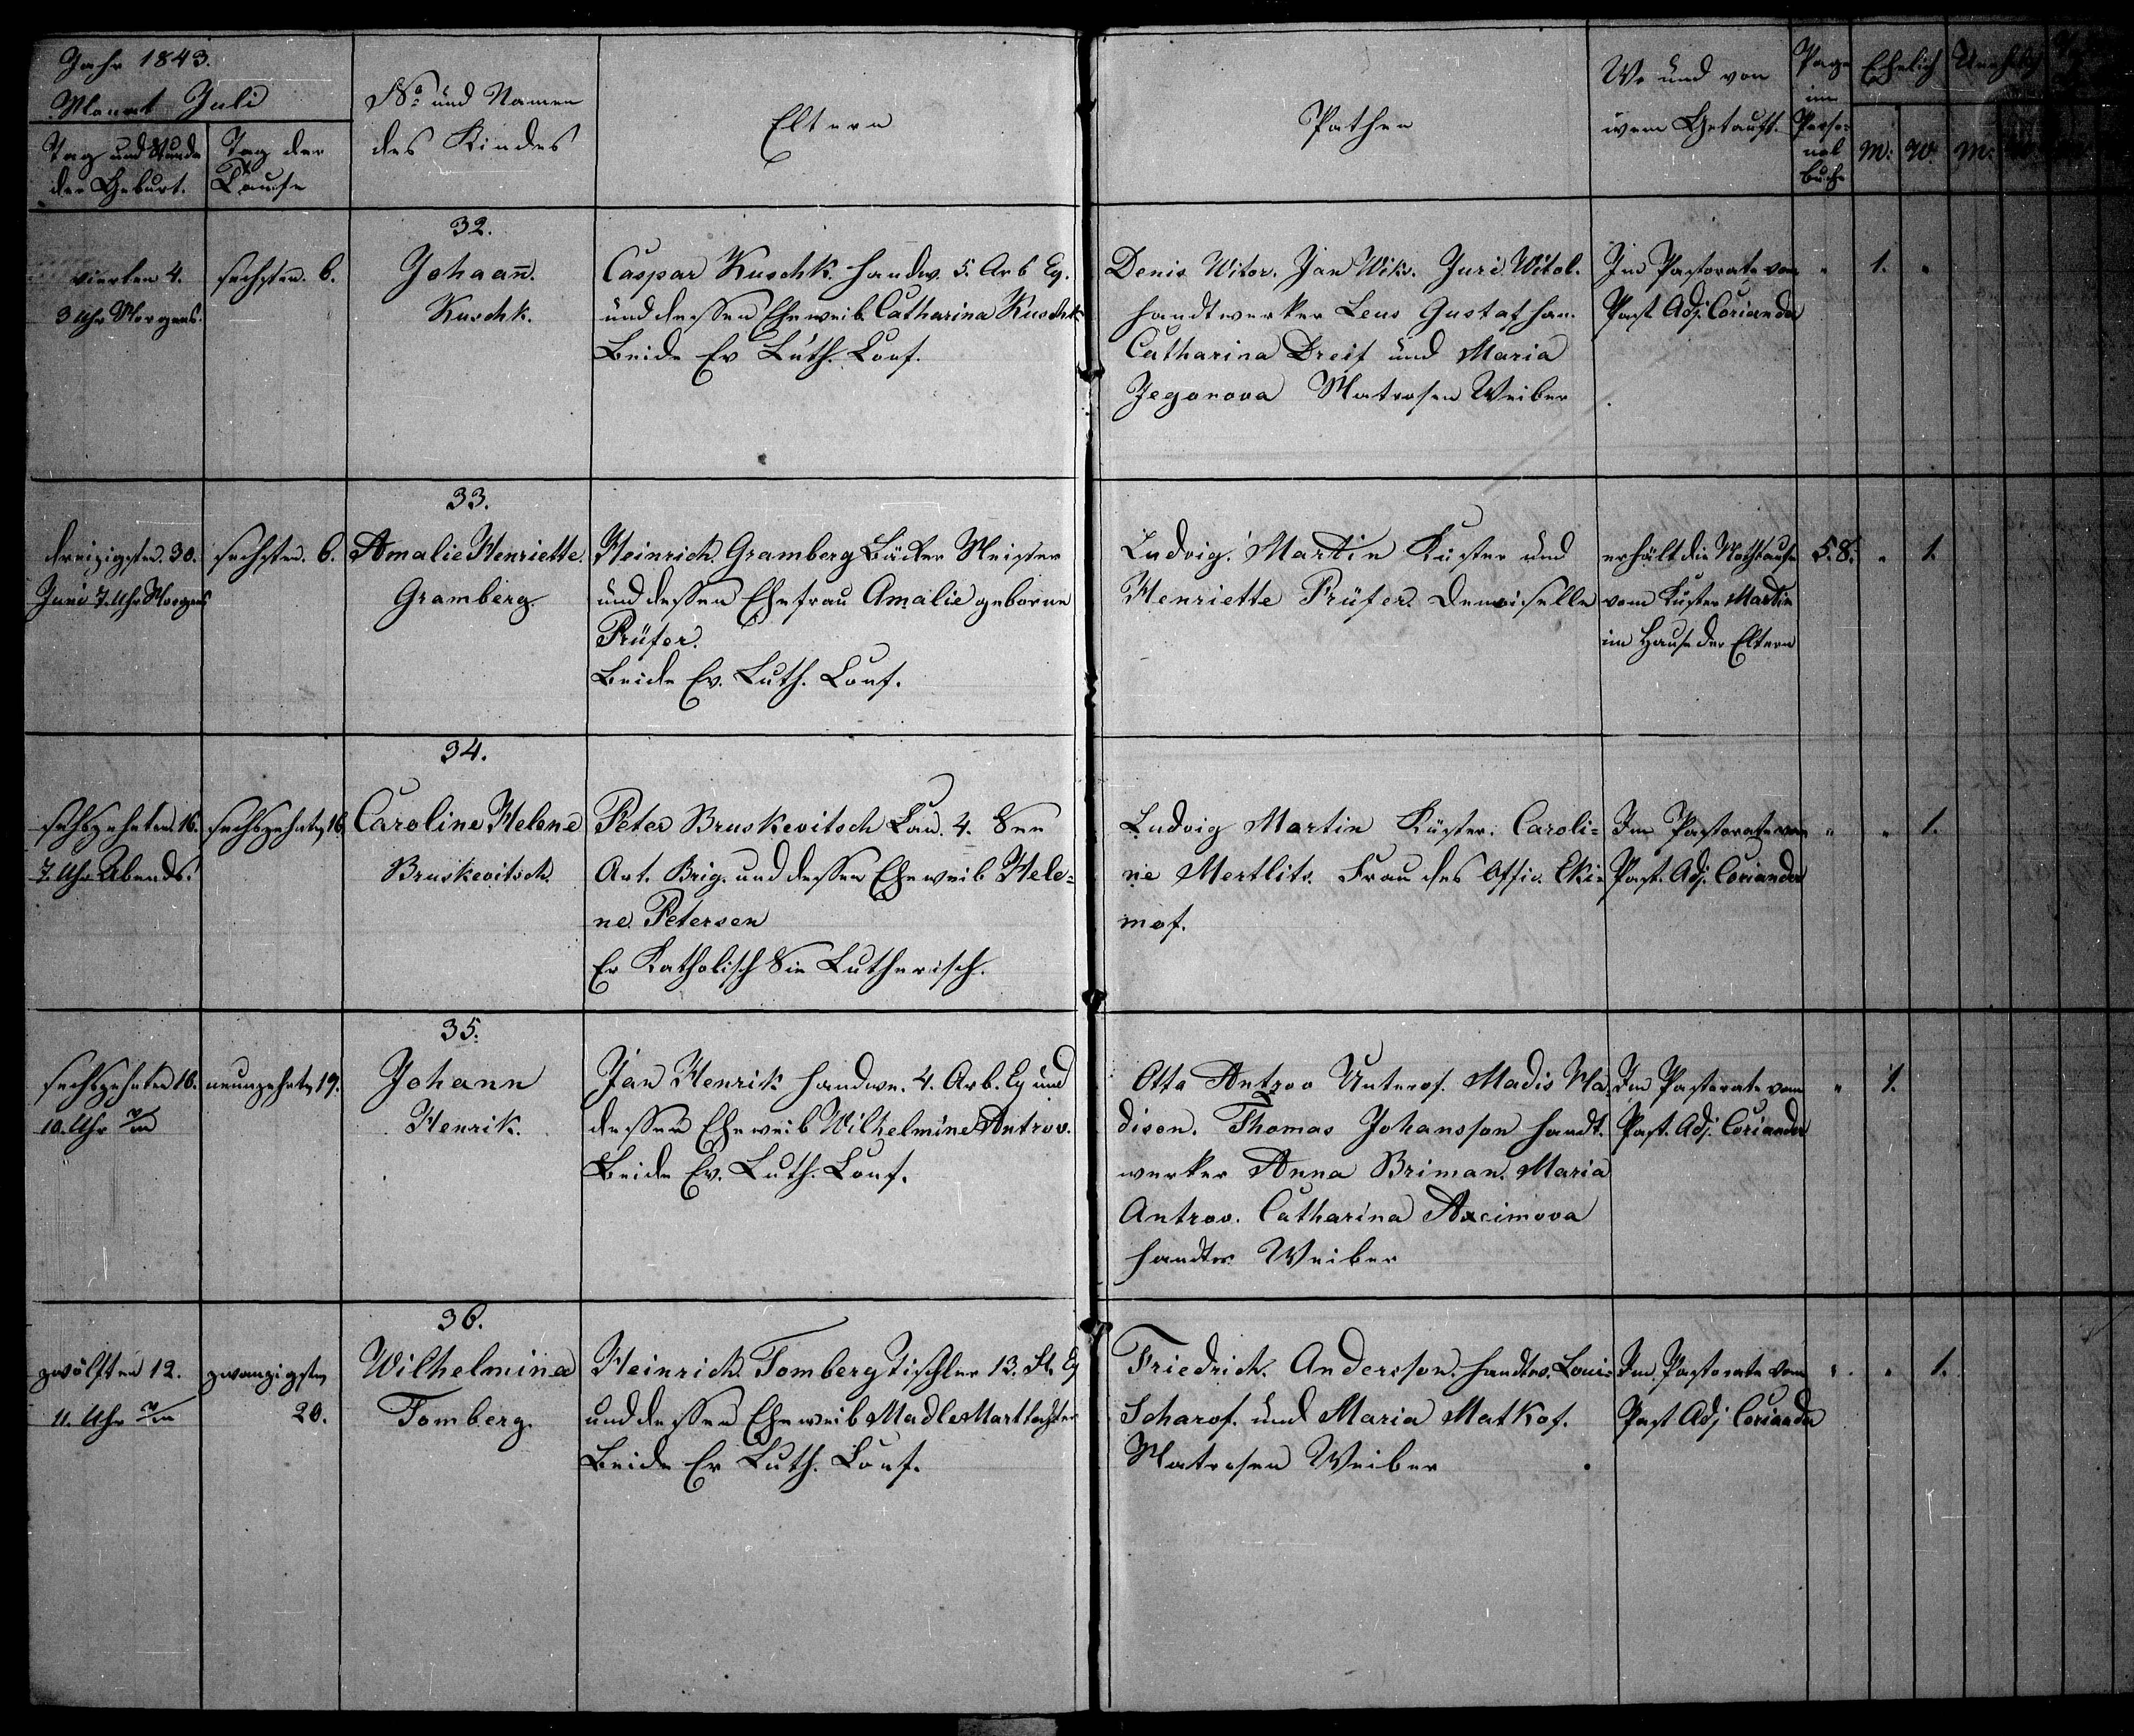 Jahr 1843.
Monat Juli
Tag und Stunde der Geburt.
Tag der Taufe
No und Namen des Kindes
Eltern
Pathen
Wo und von wem Getauft.
Page im Personal buche
Ehelich
M: W:
Unehelich
M:
32.
vierten 4.
3 Uhr Morgens.
sechsten. 6.
Johann̄.
Kuschk.
Caspar Kuschk. Handw. 5. Arb Eq.
und dessen Eheweib Catharina Kuschk
Beide Ev Luth. Conf.
Denis Witor. Jan Wik. Juri Witol.
Handtwerker Leus Gustaf han.
Catharina Dreif und Maria
Jegorova Matrosen Weiber
Im Pastorate vom
Past Adj. Coriander
" 1. "
33.
dreizigsten. 30.
Juni 7. Uhr Morgens
sechsten. 6.
Amalie Henriette.
Gramberg.
Heinrich Gramberg Bäcker Meister
und dessen Ehefrau Amalie geborne
Prüfer.
Beide Ev. Luth. Conf.
Ludvig. Martin Küster und
Henriette Prüfer. Demoiselle
erhält die Nothtaufe
vom Küster Martin
im Hause der Eltern
58. " 1.
34.
sechszehnten. 16.
7. Uhr Abends.
sechszehnten 16.
Caroline Helene
Bruskevitsch.
Peter Bruskevitsch Can. 4. See
Art. Brig. und dessen Eheweib Hele=
ne Petersen
Er Katholisch Sie Lutherisch.
Ludvig Martin Küster. Caroli=
ne Mertlits. Frau des Offic. Ekie
mof.
Im Pastorate vom
Past. Adj. Coriander
" " 1.
35.
sechszehnten 16.
10. Uhr v/m
neunzehnten 19.
Johann
Henrik.
Jan Henrik Handwr. 4. Arb. Eq und
dessen Eheweib Wilhelmine Antrov.
Beide Ev. Luth. Conf.
Otto Antrov Unterof. Madis Ma
dison. Thomas Johansson Handt.
werker Anna Briman. Maria
Antrov. Catharina Axcimova
Handtw. Weiber
Im Pastorate vom
Past. Adj. Coriander
" 1.
36.
zwölften 12.
11. Uhr v/m
zwanzigsten
20.
Wilhelmina
Tomberg.
Heinrich Tomberg Tischler 13. St. Eq
und dessen Eheweib Madle Marttochter
Beide Ev Luth. Conf.
Friedrich. Andersson. Handtw. Loui=
Scharof. und Maria Matkof.
Matrosen Weiber
Im Pastorate vom
Past Adj Coriander
" " 1.